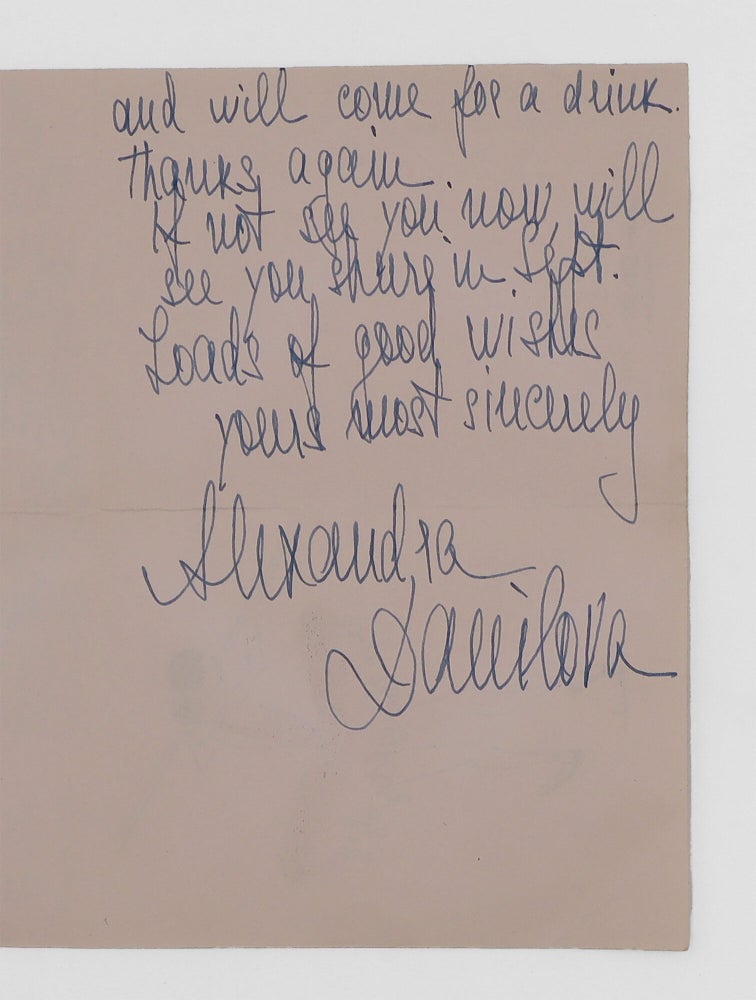 and will come for a drink.
thanks again.
If not see you now, will
see you shure in Sept.
Loads of good wishes
yours most sincerely
Alexandra
Danilova